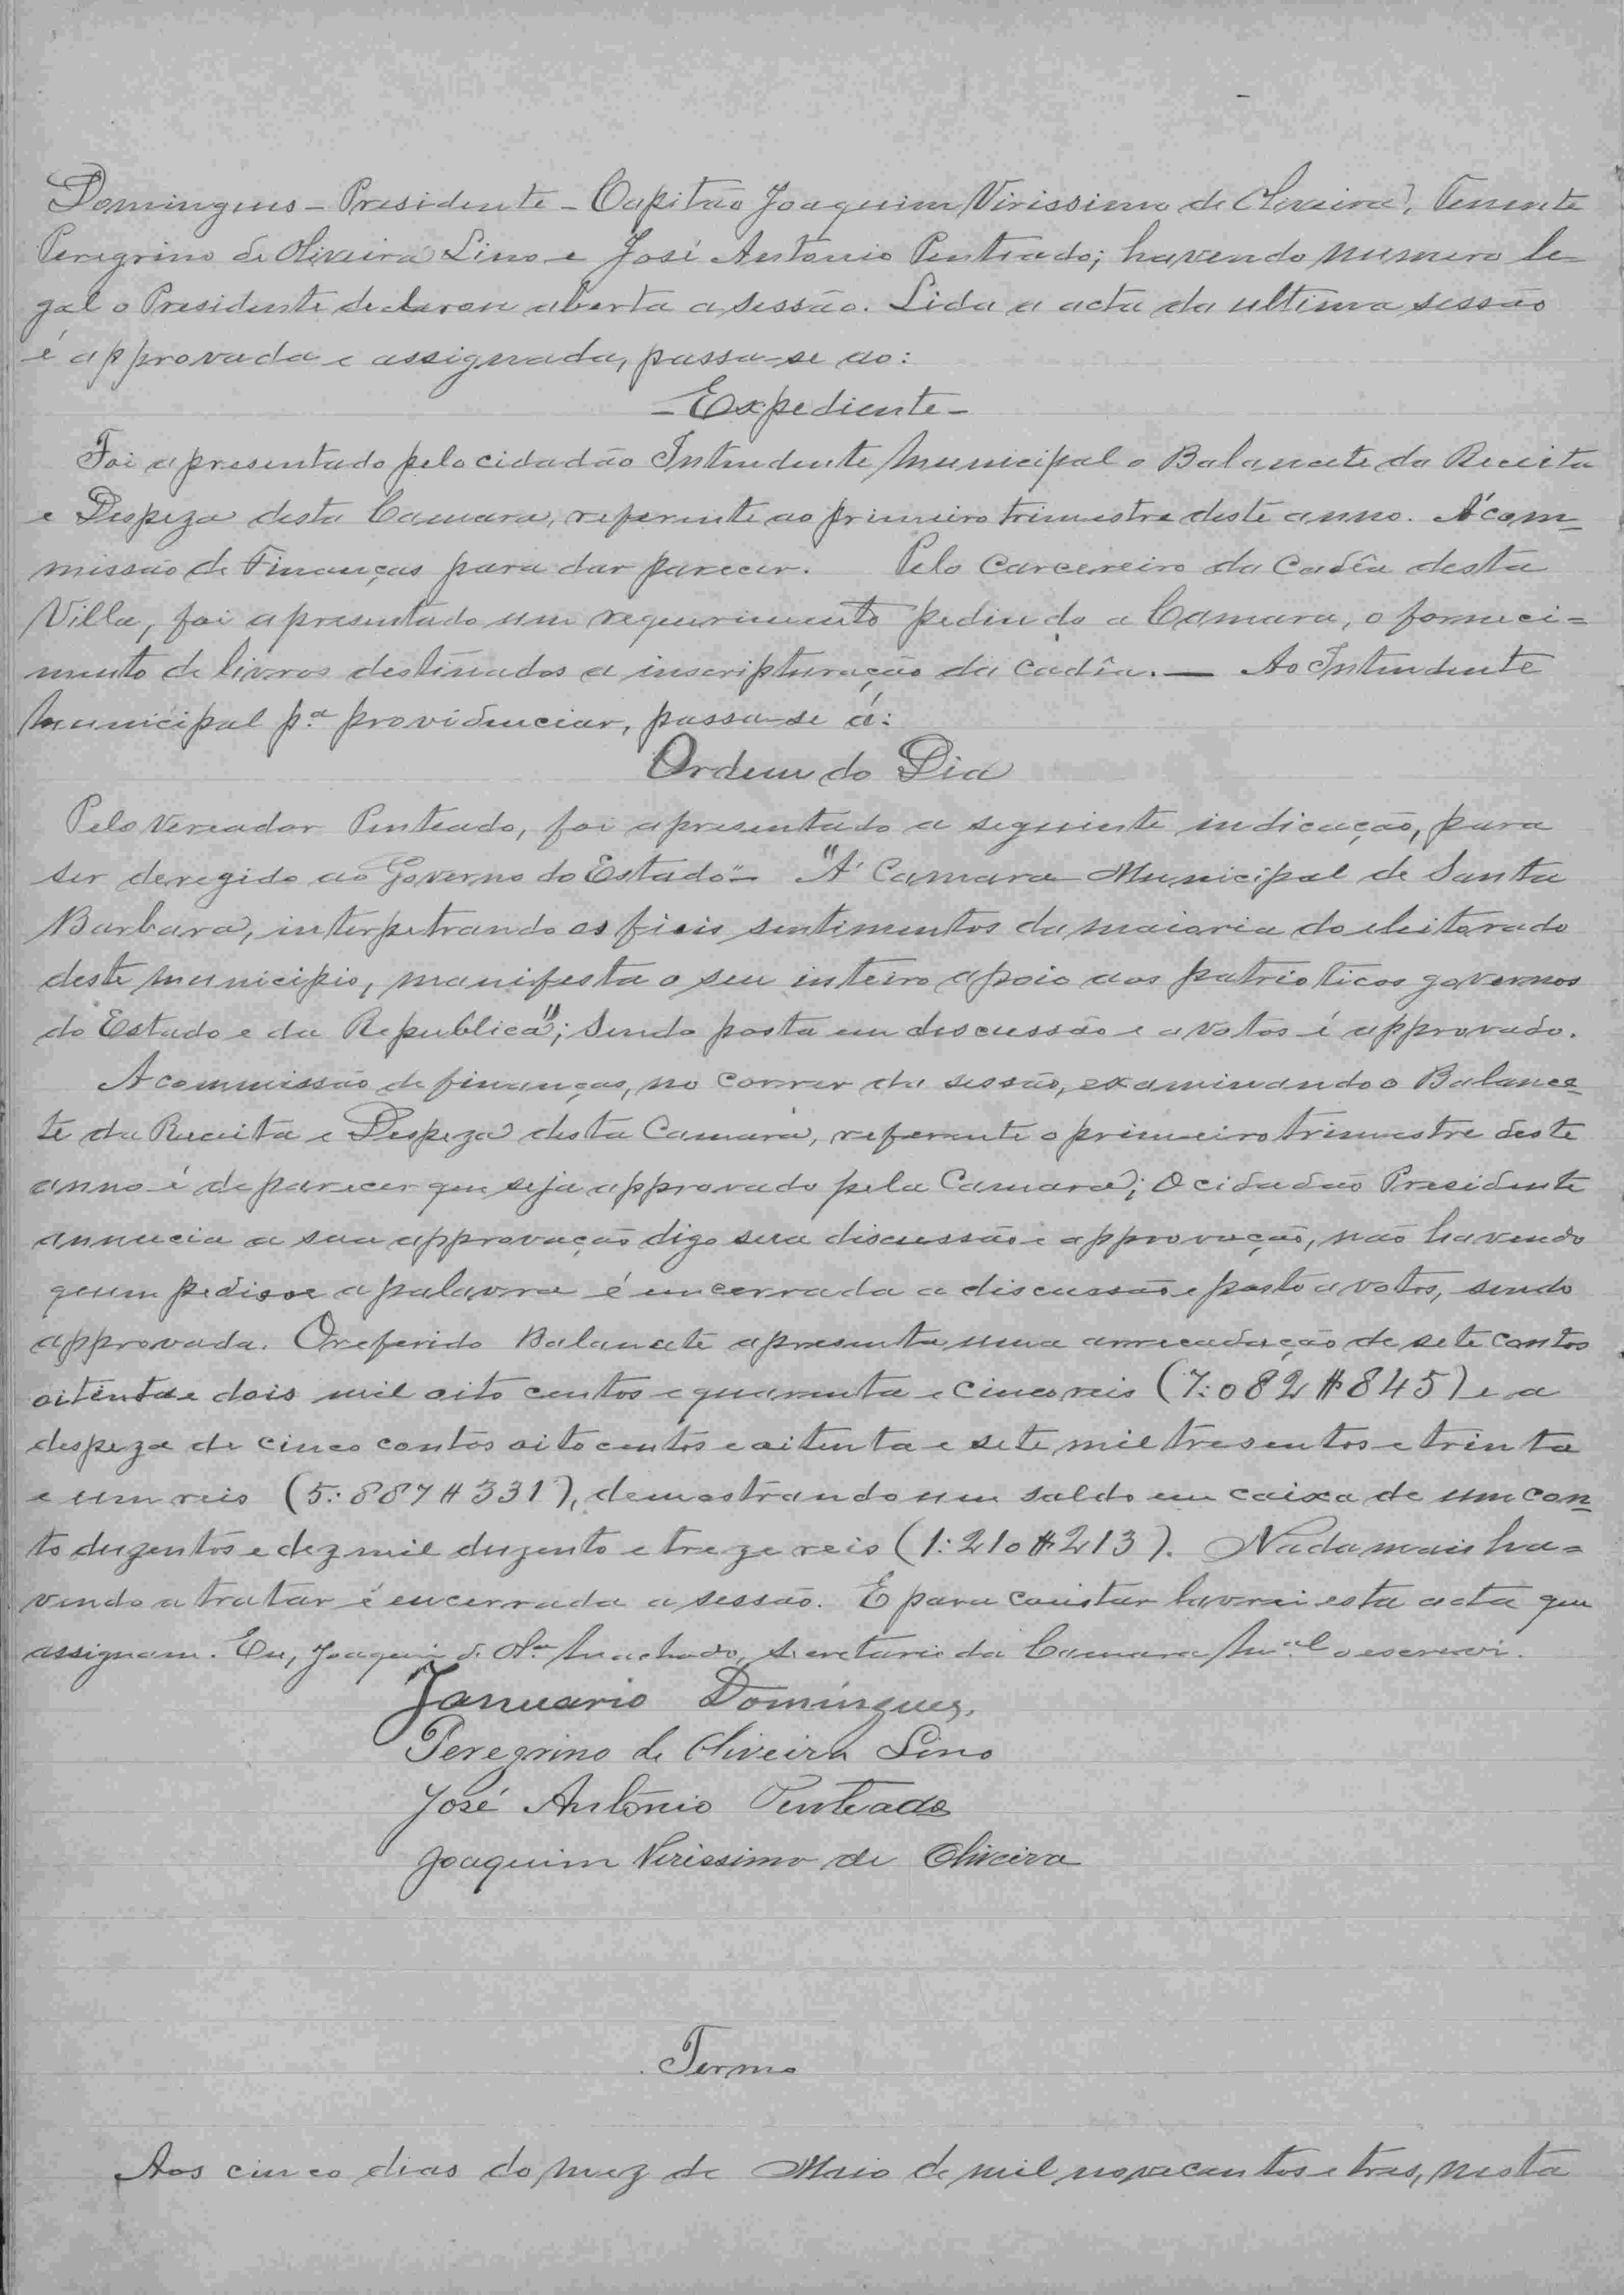 Domingues - Presidente - Capitão Joaquim Virissimo de Oliveira, Tenente
Peregrino de Oliveira Lino e José Antonio Penteado; havendo numero le-
gal o Presidente declarou aberta a sessão. Lida a acta da ultima sessão
é approvada e assignada, passa-se ao:
- Expediente -
Foi apresentado pelo cidadão Intendente Municipal o Balancete da Receita
e Despeza desta Camara, referente ao primeiro trimestre deste anno. Á com-
missão de Finanças para dar parecer. Pelo Carcereiro da Cadêa desta
Villa, foi apresentado um requerimento pedindo a Camara, o forneci=
mento de livros destinados a inscripturação da cadêa. — Ao Intendente
Municipal pª providenciar, passa-se á:
Ordem do Dia
Pelo Vereador Penteado, foi apresentado a seguinte indicação, para
ser deregido ao Governo do Estado"- "A' Camara Municipal de Santa
Barbara, interpetrando os fieis sentimentos da maioria do eleitorado
deste municipio, manifesta o seu inteiro apoio aos patrioticos governos
do Estado e da Republica"; sendo posta em discussão e a votos é approvado.
A commissão de finanças, no correr da sessão, examinando o Balance-
te da Receita e Despeza desta Camara, referente o primeiro trimestre deste
anno é de parecer que seja approvado pela Camara; O cidadão Presidente
annucia a sua approvação digo sua discussão e approvação, não havendo
quem pedisse a palavra é encerrada a discussão e posto a votos, sendo
approvada. O referido Balancete apresenta uma arrecadação de sete contos
oitenta e dois mil oito centos e quarenta e cinco reis (7:082$845) e a
despeza de cinco contos oito centos e oitenta e sete mil tresentos e trinta
e um reis (5:887$331), demostrando um saldo em caixa de um con-
to duzentos e dez mil duzento e treze reis (1:210$213). Nada mais ha=
vendo a tratar é encerrada a sessão. E para constar lavrei esta acta que
assignam. Eu, Joaquim de Olª Machado, Secretario da Camara Mual o escrevi.
Januario Domingues.
Peregrino de Oliveira Lino
José Antônio Penteado
Joaquim Verissimo de Oliveira
Termo
Aos cinco dias do mez de Maio de mil novecentos e tres, nesta